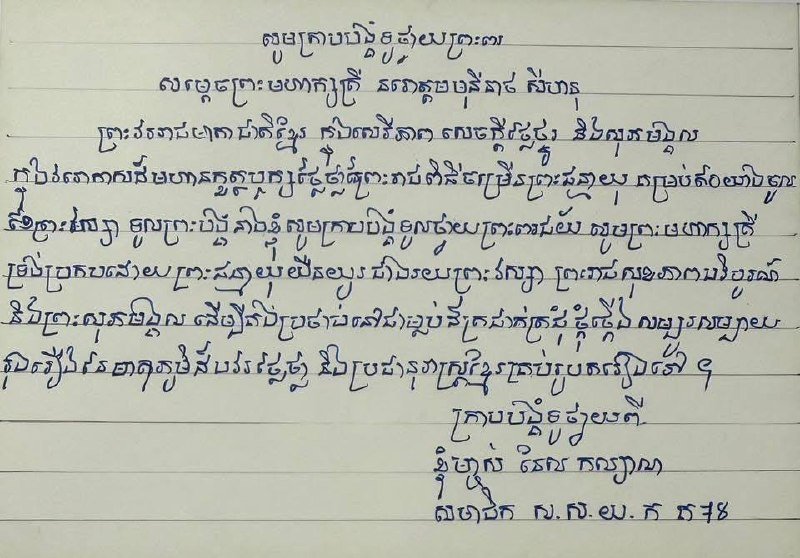 សូមក្រាបបង្គំទូលថ្វាយព្រះពរ
សម្តេចព្រះមហាក្សត្រី នរោត្តមមុនីនាថ សីហនុ
ព្រះវររាជមាតាជាតិខ្មែរ ក្នុងសេរីភាព សេចក្តីថ្លៃថ្នូរ និងសុភមង្គល
ក្នុងវរោកាសដ៏មហានក្ខត្តឫក្សថ្លៃថ្លានៃព្រះរាជពិធីចម្រើនព្រះជន្មាយុ គម្រប់៩០យាងចូល
៩១ព្រះវស្សា ទូលព្រះបង្គំនាងខ្ញុំសូមក្រាបបង្គំទូលថ្វាយព្រះពរជ័យ សូមព្រះមហាក្សត្រី
ទ្រង់ប្រកបដោយ ព្រះជន្មាយុយឺនយូរជាងរយព្រះវស្សា ព្រះរាជសុខភាពបរិបូរណ៍
និងព្រះសុភមង្គល ដើម្បីគង់ប្រថាប់នៅជាម្លប់ដ៏ត្រជាក់ត្រជុំ ថ្កុំថ្កើង សម្បូរសប្បាយ
រុងរឿងនៃមាតុភូមិដ៏បវរថ្លៃថ្លា និងប្រជានុរាស្ត្រខ្មែរគ្រប់រូបតរៀងទៅ ។
ក្រាបបង្គំទូលថ្វាយពី
ខ្ញុំម្ចាស់ កល្យាណ
សមាជិក ស.ស.យ.ក ត ៧៨